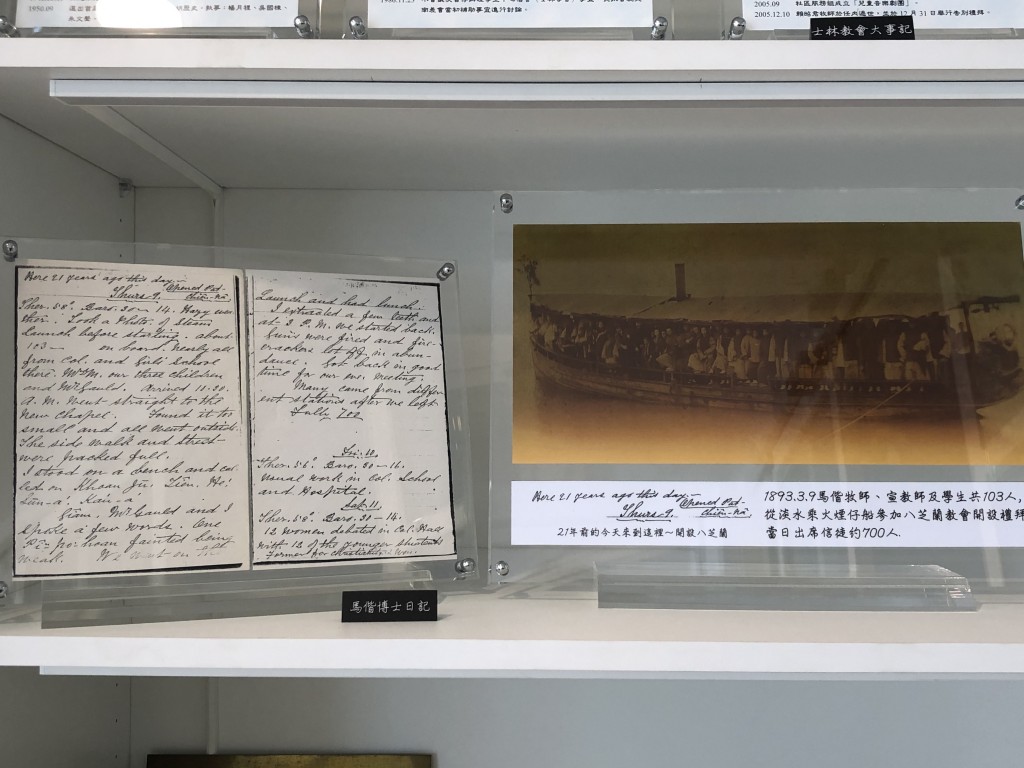 1950.09
2005.09 社區服務組成立「兒童音樂劇團」。
士林教會大事記
Here 21 years ago this day.—
Thurs 9. Opened Pat-
chiên-nā.
Ther. 58° Baro. 30 — 14. Hazy wea
ther. Took a Photo. of Steam
Launch before starting. about
103 — on board nearly all
from Col. and Girls' School
there. Mrs M. our three children
and Mr Gauld. Arrived 11.20.
A. M. Went straight to the
new Chapel. Found it too
small and all went outside.
The side walk and street
were packed full.
I stood on a bench and cal
led on Khoan Jū. Tiên. Ho'
Sûn-a'. Kai-a'
Giâm. Mr Gauld and I
spoke a few words. One
Pê-po-hoan fainted being
weak. We went on the
Launch and had lunch.
I extracted a few teeth and
at 2 P.M. we started back.
Guns were fired and fire-
crackers let off in abun-
dance. Got back in good
time for our eve. meeting.
Many came from differ
ent stations after we left
Fully 700
Fri. 10.
Ther. 56° Baro. 30 — 16.
Usual work in Col. School
and Hospital.
Sat. 11.
Ther. 58° Baro. 30 — 14.
12 women debated in Col. Hall
with 12 of the younger students
Former for Christianity won.
馬偕博士日記
Here 21 years ago this day.—
Thurs 9. Opened Pat-
chiên-nā.
21年前的今天來到這裡~開設八芝蘭
1893.3.9馬偕牧師、宣教師及學生共103人,
從淡水乘火煙仔船參加八芝蘭教會開設禮拜
當日出席信徒約700人.